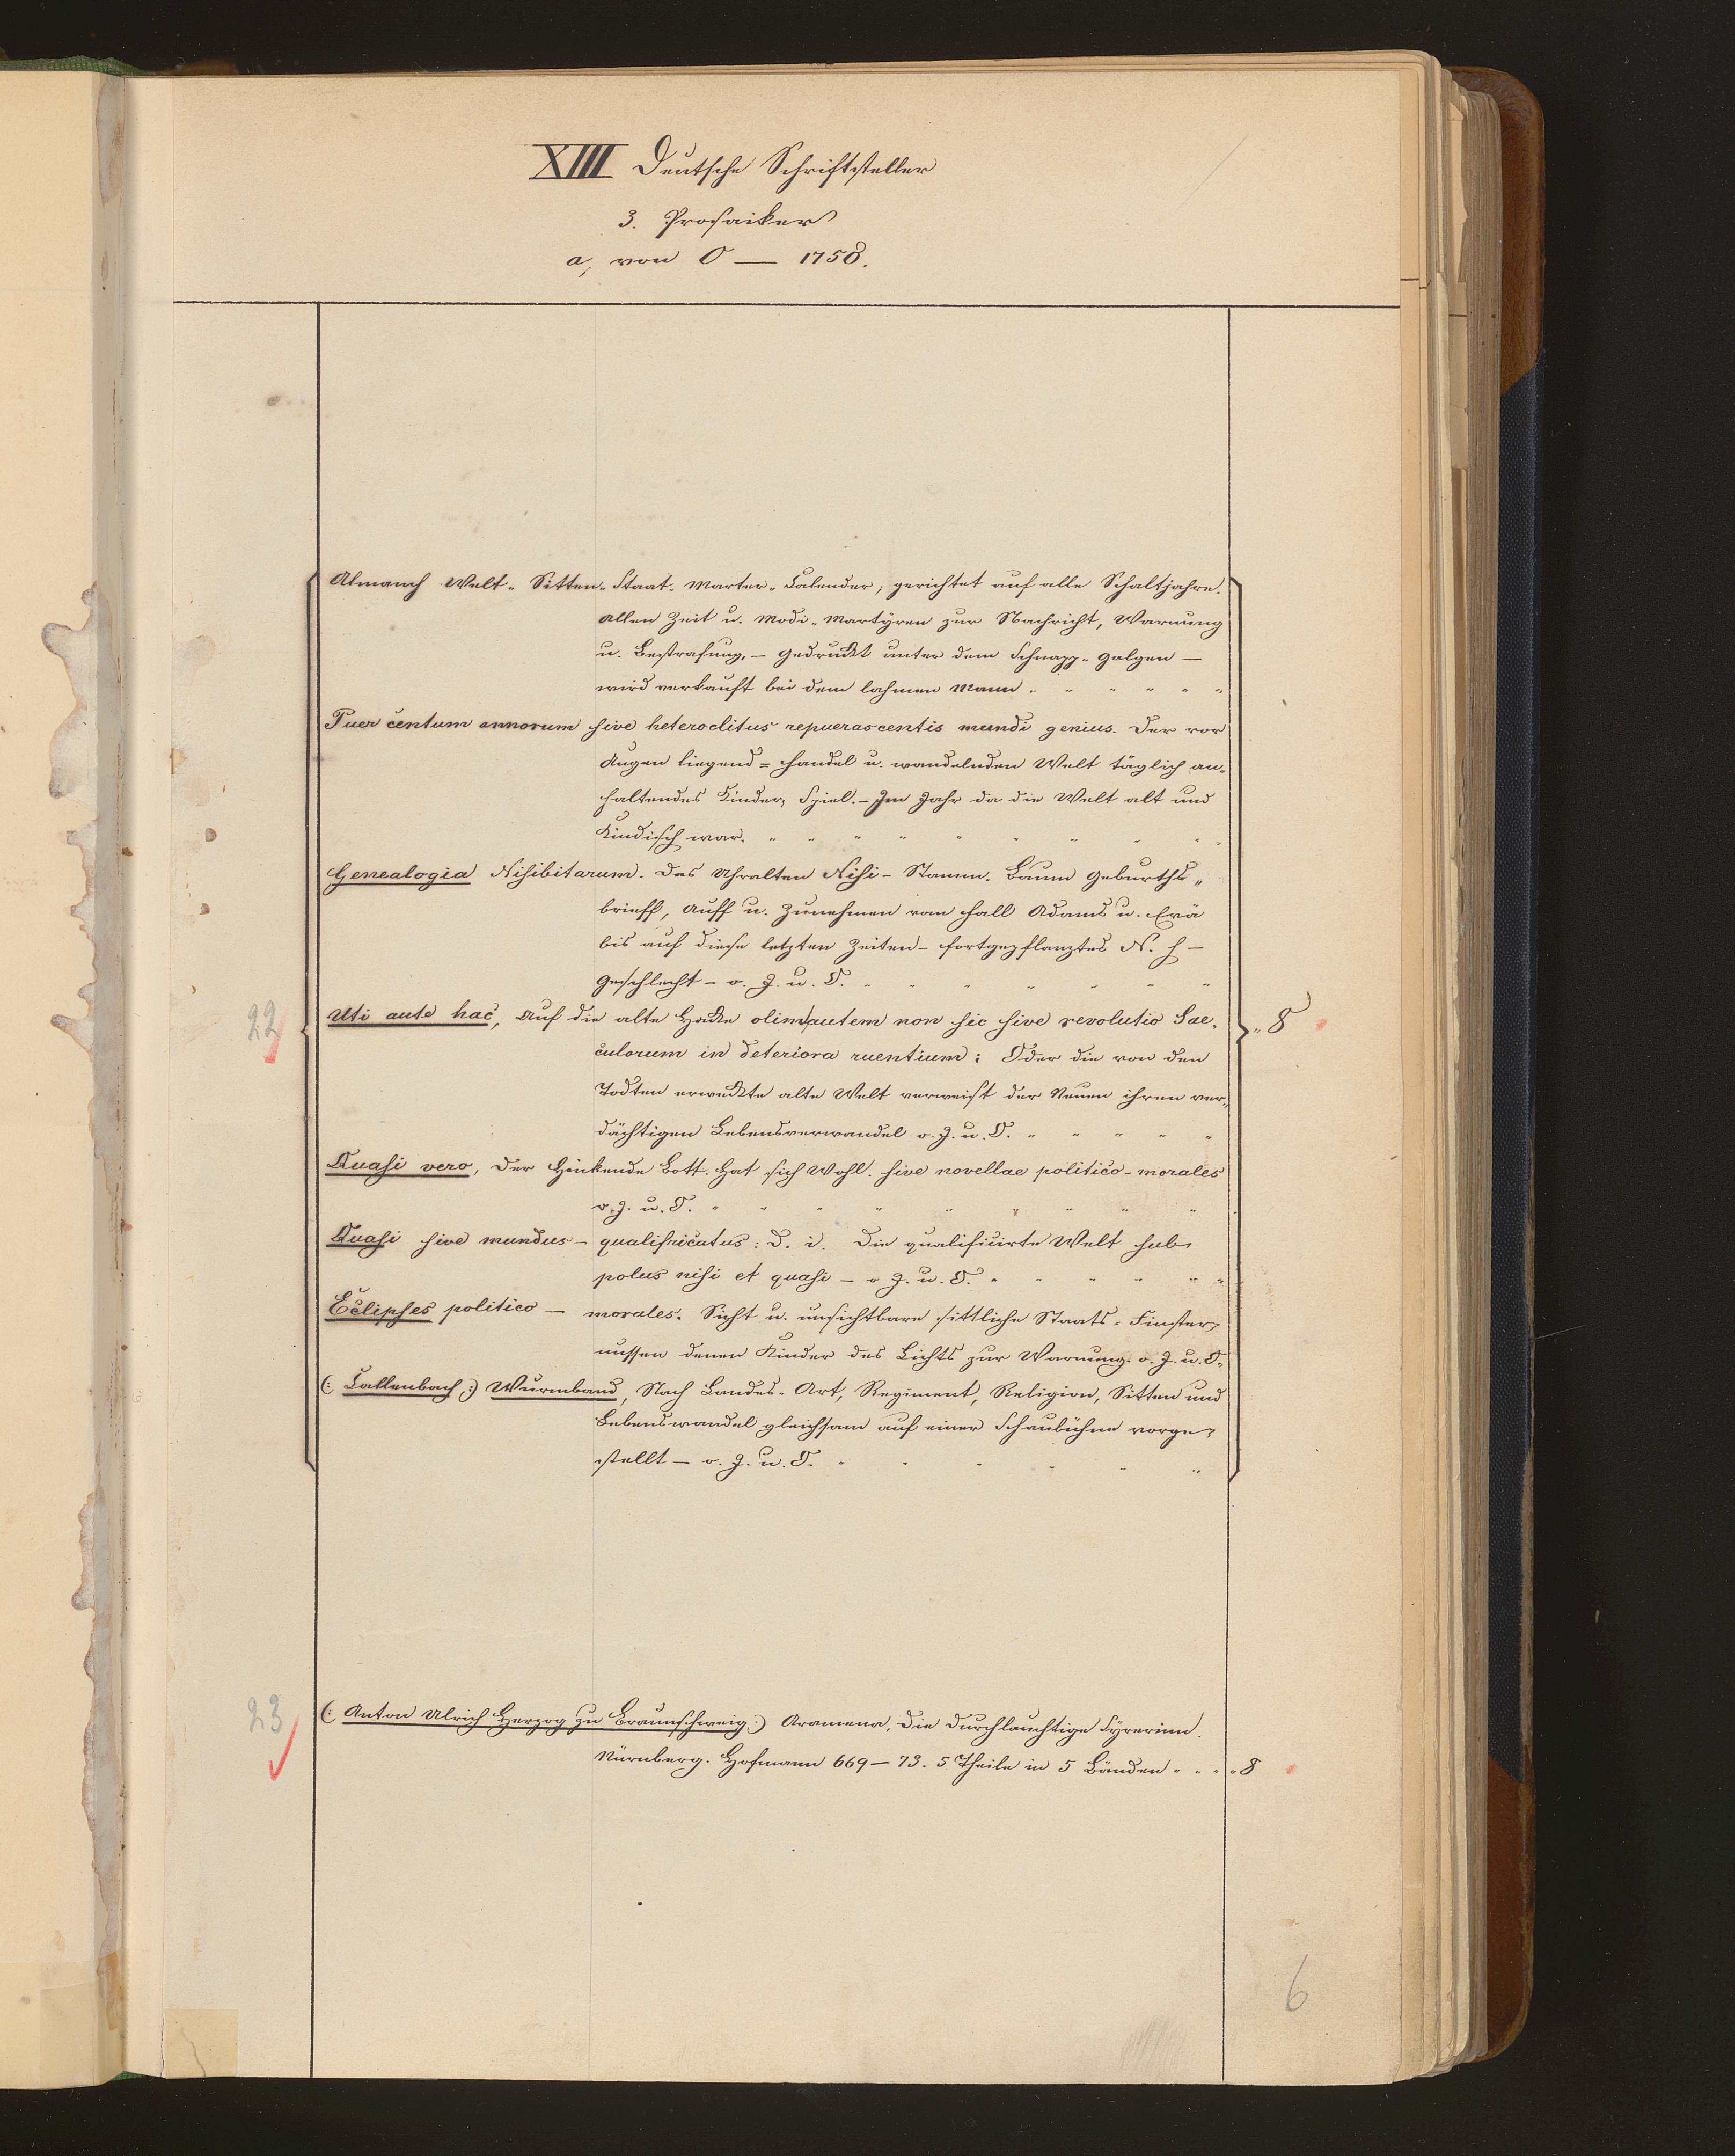 XIII Deutsche Schriftsteller
3. Prosaiker
a, von O — 1758.
Almanch Welt- Sitten- Staat- Marter- Calender, gerichtet auf alle Schaltjahre.
allen Zeit u. Modi- Martyren zur Nachricht, Warnung
u. Bestrafung, — gedruckt unter dem Schnapp- galgen —
wird verkauft bei dem lahmen Mann " " " " " "
Puer centum annorum sive heteroclitus repuerascentis mundi genius. Der vor
Augen liegend = handel u. wandelnden Welt täglich an-
haltendes Kinder Spiel. — Im Jahr da die Welt alt und
Kindisch war. " " " " " " " " "
Genealogia Nisibitarum. Das Uhralten Nisi- Stamm- Baum geburths
brieff, Auff u. Zunehmen vom fall Adams u. Evä
bis auf diese letzten Zeiten — fortgepflanztes N. h —
geschlecht — o. J. u. O. " " " " " " "
22 Uti ante hac, Auf die alte Hacke olim autem non sic sive revolutio Sae- " 8
culorum in deteriora ruentium: Oder die von den
Todten erweckte alte Welt verweist der Neuen ihren ver-
dächtigen Lebensverwandel o. J. u. O. " " " " "
Quasi vero, der Hinkende Bott. hat sich Wohl. sive novellae politico-morales
o. J. u. O. " " " " " " " " "
Quasi sive mundus — qualificatus: d. i. Die qualificirte Welt sub
polus nisi et quasi — o J. u. O. " " " " " "
Eclipses politico — morales. Sicht u. unsichtbare sittliche Staats- Finster-
nussen denen Kinder des Lichts zur Warnung. o. J. u. O.
(: Callenbach :) Wurmband, Nach Landes- Art, Regiment, Religion, Sitten und
Lebenswandel gleichsam auf einer Schaubühne vorge-
stellt — o. J. u. O. " " " " " "
23 (: Anton Ulrich Herzog zu Braunschweig :) Aramena, die durchlauchtige Syrerinn.
Nürnberg. Hofmann 669 — 73. 5 Theile in 5 Bänden " " " " 8
6